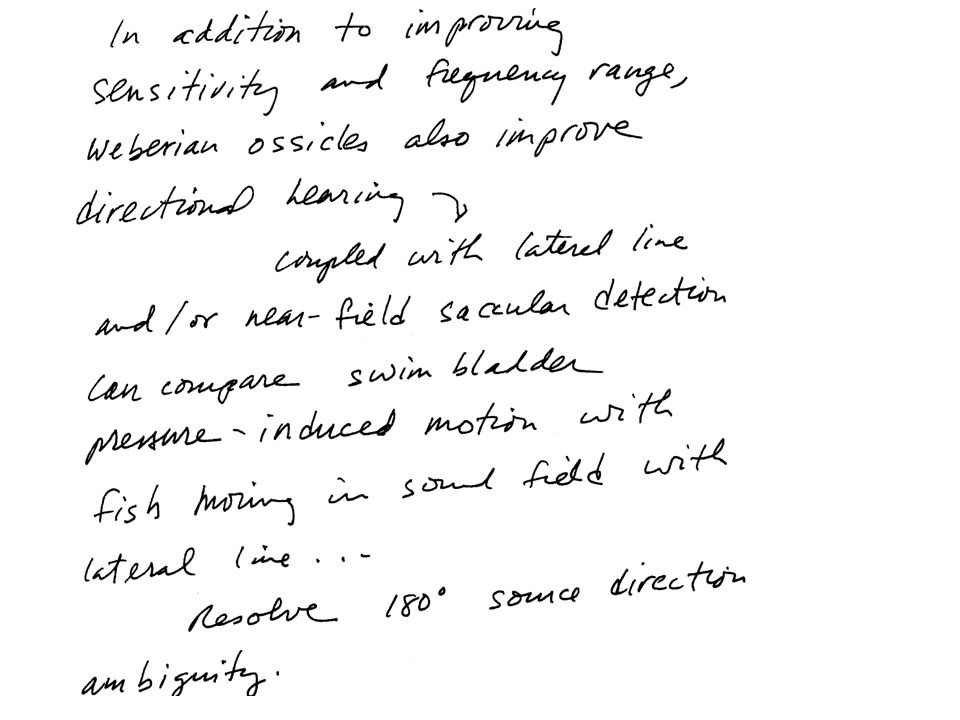 In addition to improving
sensitivity and frequency range,
Weberian ossicles also improve
directional hearing
coupled with lateral line
and/or near-field saccular detection
can compare swim bladder
pressure-induced motion with
fish moving in sound field with
lateral line ...
Resolve 180° source direction
ambiguity.